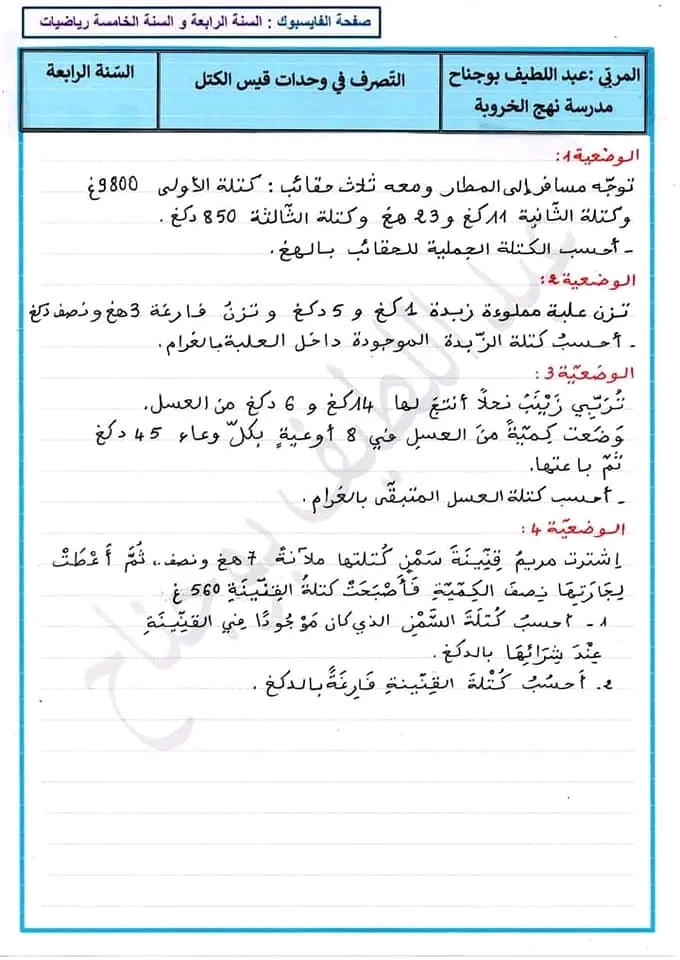 صفحة الفايسبوك : السنة الرابعة و السنة الخامسة رياضيات
المربّي :عبد اللطيف بوجناح
مدرسة نهج الخروبة
التّصرف في وحدات قيس الكتل
السّنة الرابعة
الوضعية 1:
توجّه مسافر إلى المطار ومعه ثلاث حقائب : كتلة الأولى 9800غ
وكتلة الثّانية 11كغ و 23 هغ وكتلة الثّالثة 850 دكغ .
- أحسب الكتلة الجملية للحقائب بالهغ.
الوضعية 2:
تزن علبة مملوءة زبدة 1كغ و 5 دكغ و تزنُ فارغة 3هغ ونصف دكغ
- أحسبُ كتلة الزّبدة الموجودة داخل العلبة بالغرام.
الوضعيّة 3:
تُرَبِّي زَيْنَبُ نحلاً أنتجَ لها 14كغ و 6 دكغ من العسل.
وَضَعت كِميّةً منَ العسلِ في 8 أوعيةٍ بكلّ وعاء 45 دكغ
ثمّ باعتها.
- أحسب كتلة العسل المتبقّى بالغرام .
الوضعيّة 4:
اِشترت مريمُ قِنّينَةَ سَمْنٍ كُتلتها ملآنةً 7هغ ونصف.، ثُمَّ أَعْطَتْ
لِجَارَتِهَا نِصفَ الكِمّيّةِ فَأَصْبَحَتْ كتلةُ القِنّينَةِ 560 غ
1 - أحسبُ كُتلَةَ السَّمْنِ الذي كان مَوْجُودًا في القنّينَةِ
عِنْدَ شِرَائِهَا بالدكغ.
2. أَحسُبُ كُتْلةَ القِنّينةِ فَارِغَةً بالدكغ .
عبد اللطيف بوجناح